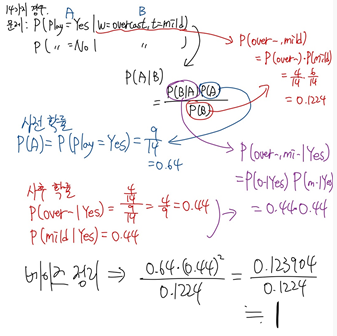 14가지 경우 A B
문제: P(Play=Yes | w=overcast, t=mild)
P( 〃 =No | 〃 )
P(over~, mild)
= P(over~)·P(mild)
= 4/14 6/14
= 0.1224
P(A|B)
= P(B|A)P(A) / P(B)
사전 확률
P(A) = P(Play=Yes) = 9/14
= 0.64
P(over~, mi~|Yes)
= P(o~|Yes) P(m~|Yes)
= 0.44·0.44
사후 확률
P(over~|Yes) = 4/14 / 9/14 = 4/9 = 0.44
P(mild|Yes) = 0.44
베이즈 정리 ⇒ 0.64·(0.44)² / 0.1224 = 0.123904 / 0.1224
≒ 1